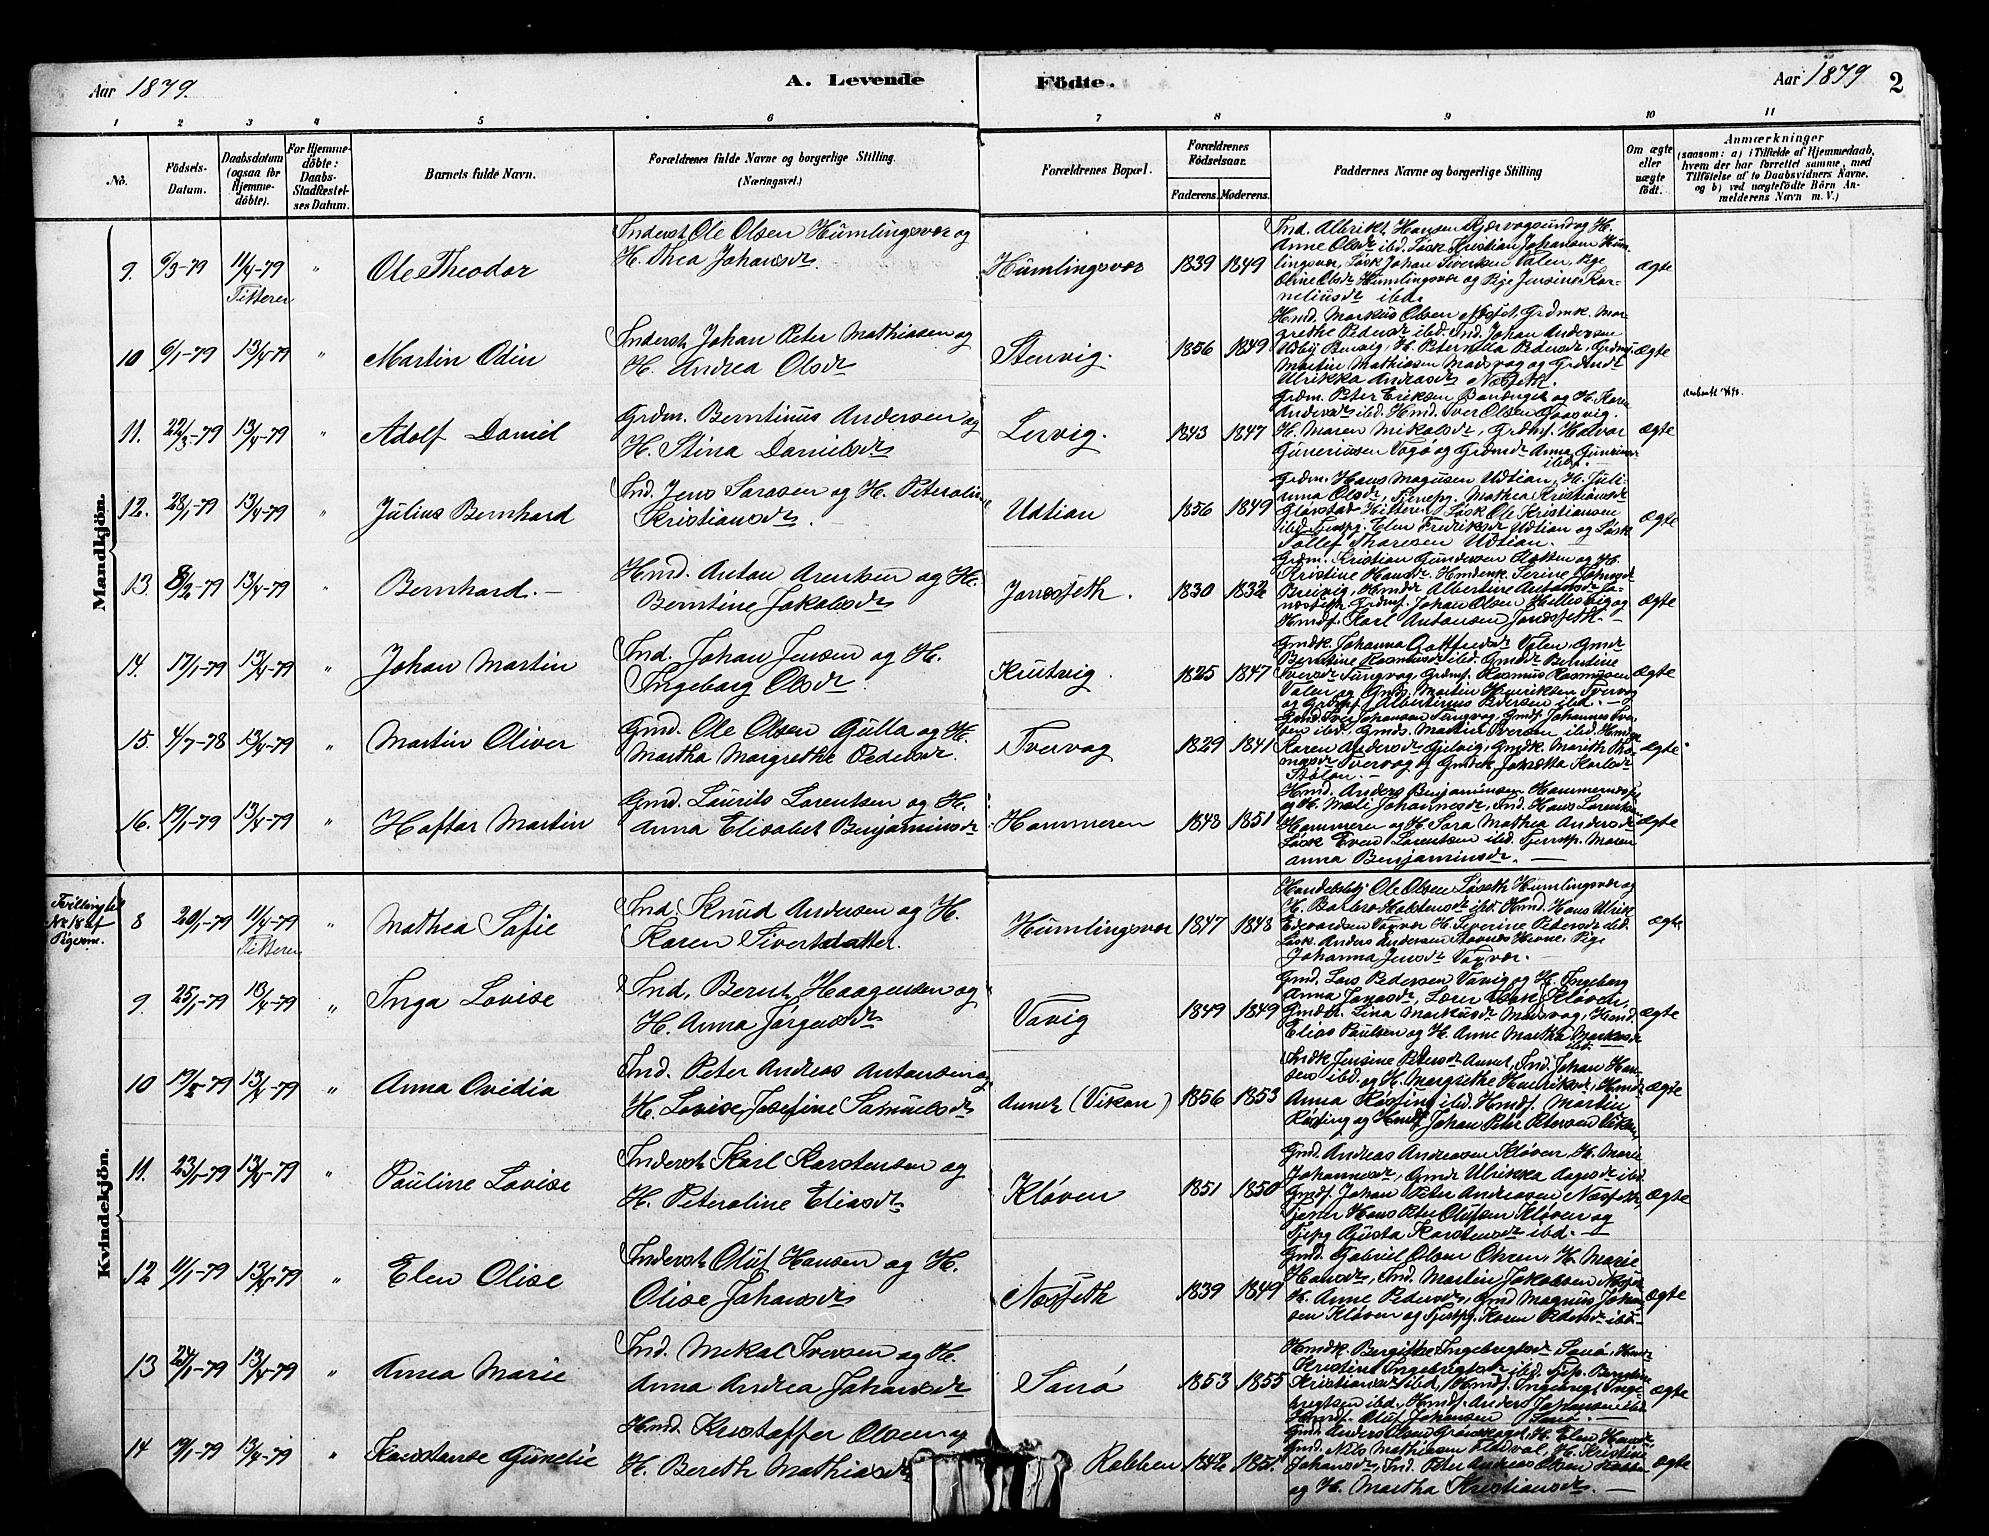 Aar 1879. A. Levende Fødte. Aar 1879 2
1 2 3 4 5 6 7 8 9 10 11
No. Fødsels-Datum. Daabsdatum (ogsaa for Hjemmedøbte). For Hjemmedøbte: Daabs-Stadfæstelses Datum. Barnets fulde Navn. Forældrenes fulde Navne og borgerlige Stilling. (Næringsvei.) Forældrenes Bopæl. Forældrenes Fødselsaar. Faderens. Moderens. Faddernes Navne og borgerlige Stilling Om ægte eller uægte født. Anmærkninger (saasom: a) i Tilfælde af Hjemmedaab, hvem der har forrettet samme, med Tilføielse af to Daabsvidners Navne, og b) ved uægtefødte Børn Anmelderens Navn m. V.)
Mandkjön.
9. 6/3-79 11/4-79 Titteren " Ole Theodor
Inderst Ole Olsen Humlingsvær og
H. Thea Johansdr.
Humlingsvær 1839 1849
Ind. Albrikt Hansen Kjærvaagsund og H.
Anne Olsdr ibd. Løsk. Kristian Johansen Hum-
lingsvær, Løsk Johan Sivertsen Valen, Pige
Oline Olsdr Humlingsvær og Pige Jensine Kor-
neliusdr ibd.
ægte
10 6/1-79 13/4-79 " Martin Odin
Inderst Johan Peter Mathiasen og
H. Andrea Olsdr
Stenvig. 1856 1849
Hmd. Markus Olsen Næsset, Grdmk. Mar-
grethe Pedersdr ibd. Ind. Johan Andersen
H. Peternilla Pedersdr, Grdms.
Martin Mathiassen Madsvag og Grdmdr
Ulrikka Andreasdr Næsseth.
ægte
11. 22/3-79 13/4-79 " Adolf Daniel
Grdm. Berntinus Andersen og
H. Stina Danielsdr
Lervig. 1843 1847
Grdm. Peter Eriksen og H. Karen
Andersdr ibd. Hmd. Iver Olsen
H. Maren Mikalsdr, Grdmf. Halvor
Guneriusen Vagø og Grdmdr Anna Guneriusdr
ibd.
ægte
12. 28/1-79 13/4-79 " Julius Bernhard
Ind. Jens Larssen og H. Peteroline
Kristiansdr.
Udtian 1856 1849
Grdm. Hans Magnusen Udtian, H. Juli-
anna Olsdr, Tjenepg. Mathea Kristiansdr
Glørstad Hitteren, Løsk Ole Kristiansen
ibd. Tjenpg. Elen Fredriksdr Udtian og Løsk
Tollef Thoresen Udtian.
ægte
13. 8/2-79 13/4-79 " Bernhard. -
Hmd. Anton Arentsen og H.
Berntine Jakobsdr
Jonesseth. 1830 1832
Grdm. Kristian Gundersen og H.
Kristine Hansdr. Hmdenk. Serine Johnsdr
Breivig, Hmdr Albertine Antonsdr Jo-
nesseth, Grdmf. Johan Olsen og
Hmdf. Karl Antonsen Jonesseth.
ægte
14. 17/1-79 13/4-79 " Johan Martin
Ind. Johan Jensen og H.
Ingeborg Olsdr.
Krutvig. 1825 1847
Gmdk. Johanna Gottfredsdr Valen, Gmdr
Berntine Rasmusdr ibd. Gmdr Berntine
Iversdr Tungvag, Grdmf. Rasmus Rasmussen
Valen og Gmds. Martin Henriksen Tvervag
og Grdmf Albertinus Pedersen ibd. -
ægte
15. 4/7-78 13/4-79 " Martin Oliver
Gmd. Ole Olsen Gulla og H.
Martha Margrethe Pedersdr.
Tvervag 1829 1841
Gmd. Iver Johansen Tungvag, Gmdf. Johannes Iver-
sen ibd, Gmds. Martin Iversen ibd. Hmdk.
Karen Andersdr Gjelvig, Gmdk Marith Tho-
masdr Tvervag og Gmdk Karlsdr
Stølan. -
ægte
16. 19/1-79 13/4-79 " Haftor Martin
Gmd. Laurits Lorentsen og H.
Anna Elisabet Benjaminsdr
Hammeren 1848 1851
Hmd. Anders Benjaminsen
og H. Mali Johannesdr, Ind. Hans Lorentsen
Hammeren og H. Sara Mathea Andersdr
Løsk Even Lorentsen ibd. Tjenstp. Maren
Anna Benjaminsdr. -
ægte
Kvindekjön.
Tvilling til No 18 af Pigerne.
8 20/1-79 11/4-79 Titteren " Mathea Sofie
Ind. Knud Andersen og H.
Karen Sivertsdatter.
Humlingsvær 1847 1848
Handelsbtj Ole Olsen Løseth Humlingsvær og
H. Barbro Halstensdr ibd. Hmd. Hans Ulrik
Edevardsen Vagvær H. Severine Petersdr ibd.
Løsk. Anders Andersen Stavnes Hevne, Pige
Johanna Jensdr Vagvær. -
ægte
9. 25/1-79 13/4-79 " Inga Lovise
Ind. Bernt Haagensen og
H. Anna Jørgensdr
Vavig 1849 1849
Gmd. Lars Pedersen Vavig og H. Ingeborg
Anna Jonasdr, Lærer Kløven,
Gmdr. Lina Markusdr Madsvag, Hmd.
Elias Paulsen og H. Anne Martha Markusdr
ibd.
ægte
10 19/2-79 13/4-79 " Anna Ovidia
Ind. Peter Andreas Antonsen og
H. Lovise Josefine Samuelsdr
Aunet (Vikan) 1856 1853
Indk Jensine Petersdr Aunet, Ind. Johan Han-
sen ibd. og H. Margrethe Henriksdr, Hmdr
Anna Røsting ibd. Hmdf. Martin
Røsting og Hmdf Johan Peter Petersen Vikan,
ægte
11. 23/1-79 13/4-79 " Pauline Lovise
Inderst Karl Karstensen og
H. Peteroline Eliasdr
Kløven 1851 1850
Gmd. Andreas Andreasen Kløven, H. Marie
Johannesdr, Gmdr Ulrikka Aagesdr ibd.
Gmdf. Johan Peter Andreasen Næsseth,
Tjener Hans Peter Olufsen Kløven og
Tjepg Gusta Karstensdr ibd. -
ægte
12 11/1-79 13/4-79 " Elen Olise
Inderst Oluf Hansen og H.
Olise Johansdr
Næsseth 1839 1849
Gmd. Gabriel Olsen H. Marie
Hansdr, Ind. Martin Jakobsen Næsset
H. Anne Pedersdr, Gmd Magnus Johan-
sen Kløven og Tjenstpg. Karen Pedersdr ibd.
ægte
13 24/1-79 13/4-79 " Anna Marie
Ind. Mekal Iversen og H.
Anna Andrea Johansdr
Sanø 1853 1855
Hmdk. Bergitte Ingebrigtsdr Sanø, Hmdr
Kristine Ingebrigtsdr ibd. Tjp. Berntine
Kristiansdr ibd, Hmdf. Ingebrigt Inge-
brigtsen ibd. Hmdf. Anders Johansen ibd.
Hmdf. Oluf Johansen Sanø. -
ægte
14 19/1-79 13/4-79 " Konstanse Gunelie
Hmd. Kristoffer Olsen og
H. Bereth Mathiasdr
Rabben 1842 1851
Gmd. Anders Olsen H. Elen Hansdr
Gmd. Nils Mathiasen H. Kristine
Johansdr, Ind. Peter Andreas Olsen Rabben
og H. Martha Kristiansdr. -
ægte